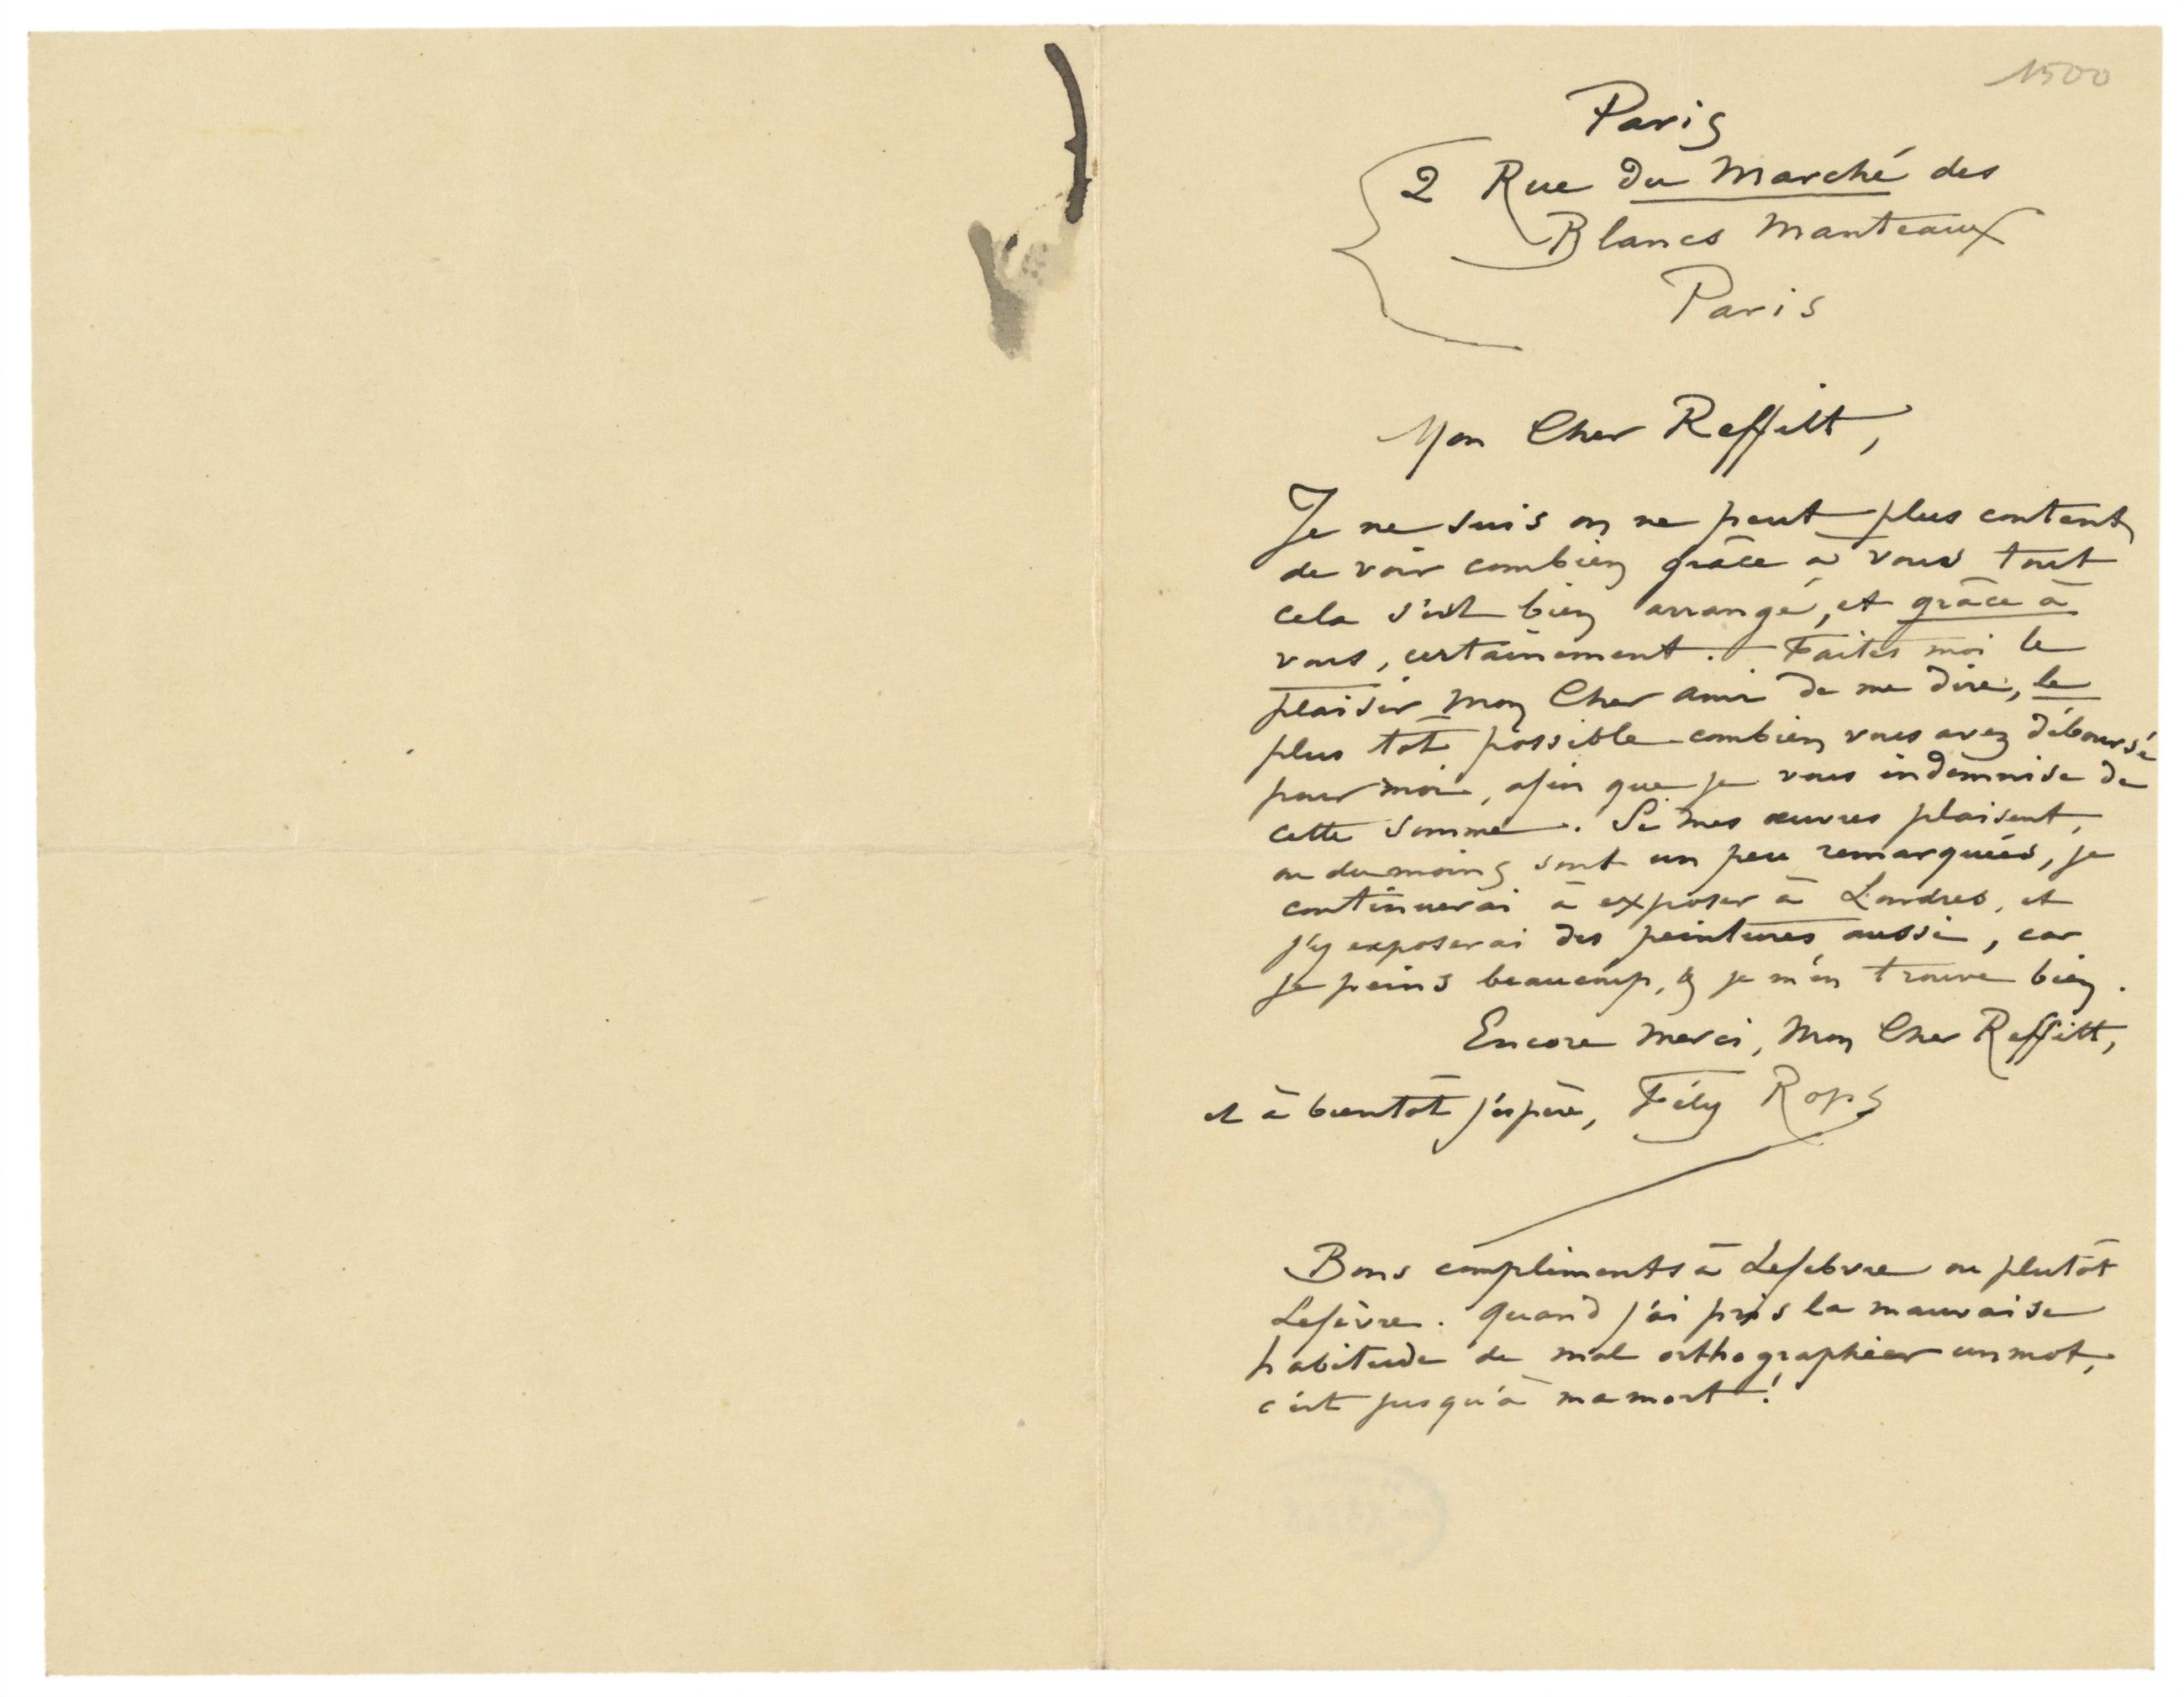 1500
Paris
2 Rue du Marché des
Blancs Manteaux
Paris
Mon Cher Reffitt,
Je ne suis on ne peut plus content
de voir combien grâce à vous tout
cela s'est bien arrangé, et grâce à
vous, certainement. Faites moi le
plaisir Mon Cher ami de me dire, le
plus tôt possible combien vous avez déboursé
pour moi, afin que je vous indemnise de
cette somme. Si mes œuvres plaisent,
ou du moins sont un peu remarquées, je
continuerai à exposer à Londres, et
j'y exposerai des peintures aussi, car
je peins beaucoup, & je m'en trouve bien.
Encore merci, Mon Cher Reffitt,
et à bientôt j'espère, Fély Rops
Bons compliments à Lefebvre ou plutôt
Lefèvre. Quand j'ai pris la mauvaise
habitude de mal orthographier un mot,
c'est jusqu'à ma mort!